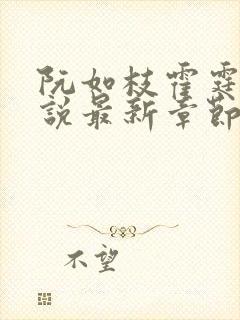 阮如枝霍霆
說最新章節
不望